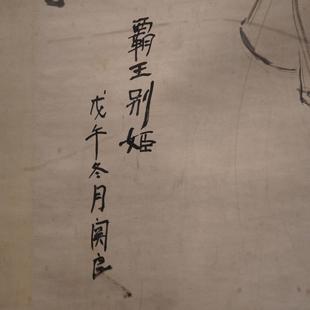 霸王别姬
戊午冬月关良